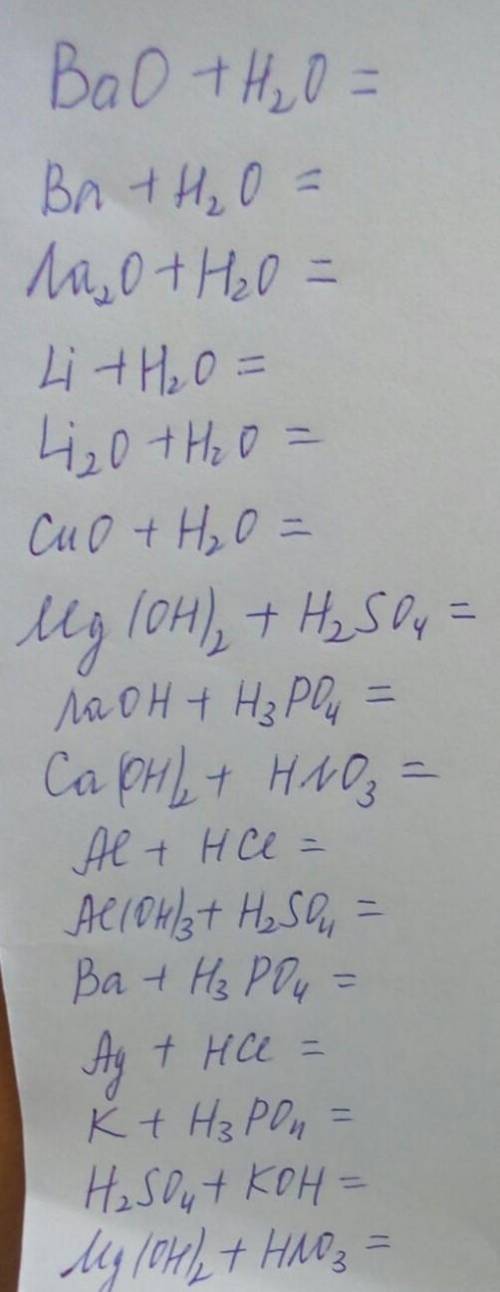 BaO + H₂O =
Ba + H₂O =
Na₂O + H₂O =
Li + H₂O =
Li₂O + H₂O =
CuO + H₂O =
Mg(OH)₂ + H₂SO₄ =
NaOH + H₃PO₄ =
Ca(OH)₂ + HNO₃ =
Al + HCl =
Al(OH)₃ + H₂SO₄ =
Ba + H₃PO₄ =
Ag + HCl =
K + H₃PO₄ =
H₂SO₄ + KOH =
Mg(OH)₂ + HNO₃ =